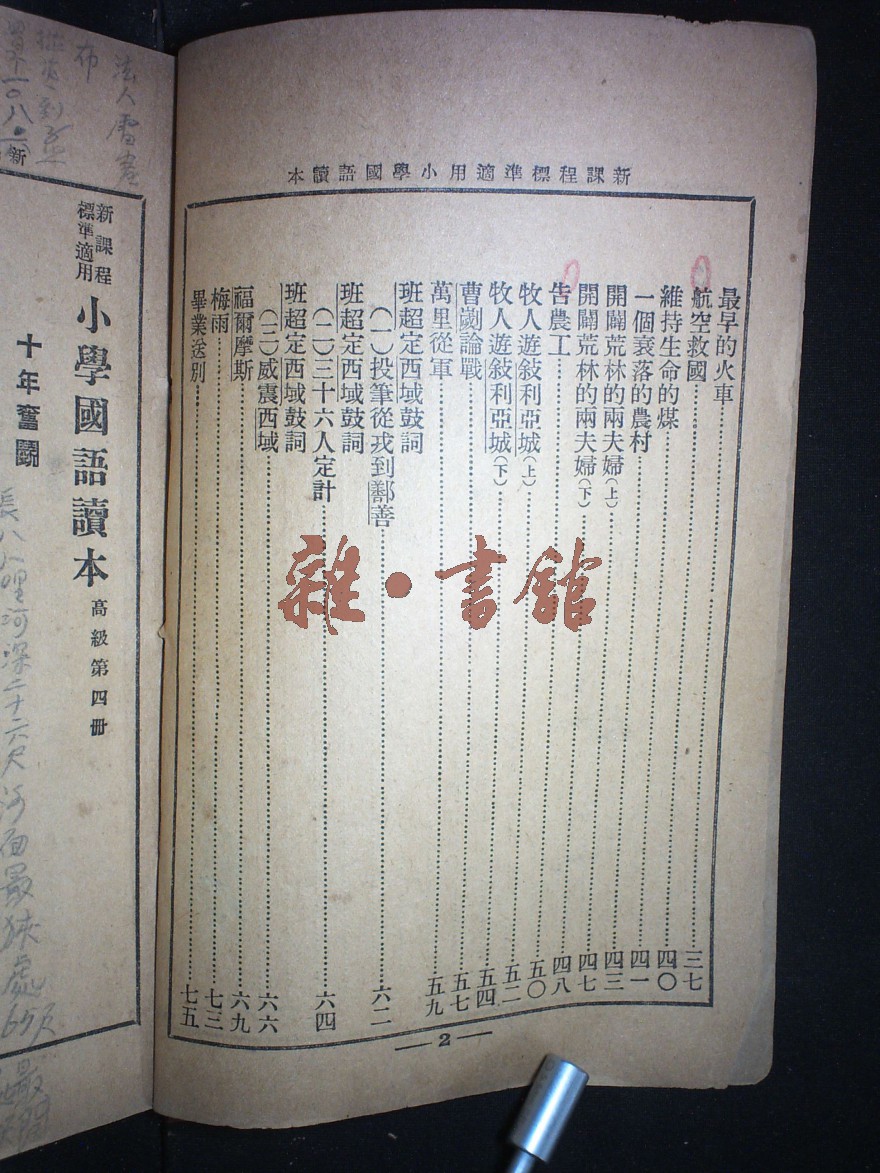 新課程標準適用小學國語讀本
最早的火車……三七
航空救國……四〇
維持生命的煤……四一
一個衰落的農村……四三
開闢荒林的兩夫婦(上)……四七
開闢荒林的兩夫婦(下)……四八
告農工……五〇
牧人遊敍利亞城(上)……五二
牧人遊敍利亞城(下)……五四
曹劌論戰……五七
萬里從軍……五九
班超定西域鼓詞
(一)投筆從戎到鄯善……六二
班超定西域鼓詞
(二)三十六人定計……六四
班超定西域鼓詞
(三)威震西域……六六
福爾摩斯……六九
梅雨……七三
畢業送別……七五
2
雜·書館
新
新課程
標準適用
小學國語讀本
高級第四冊
十年奮鬭
法人
布
里河深二十六尺河面最狹處